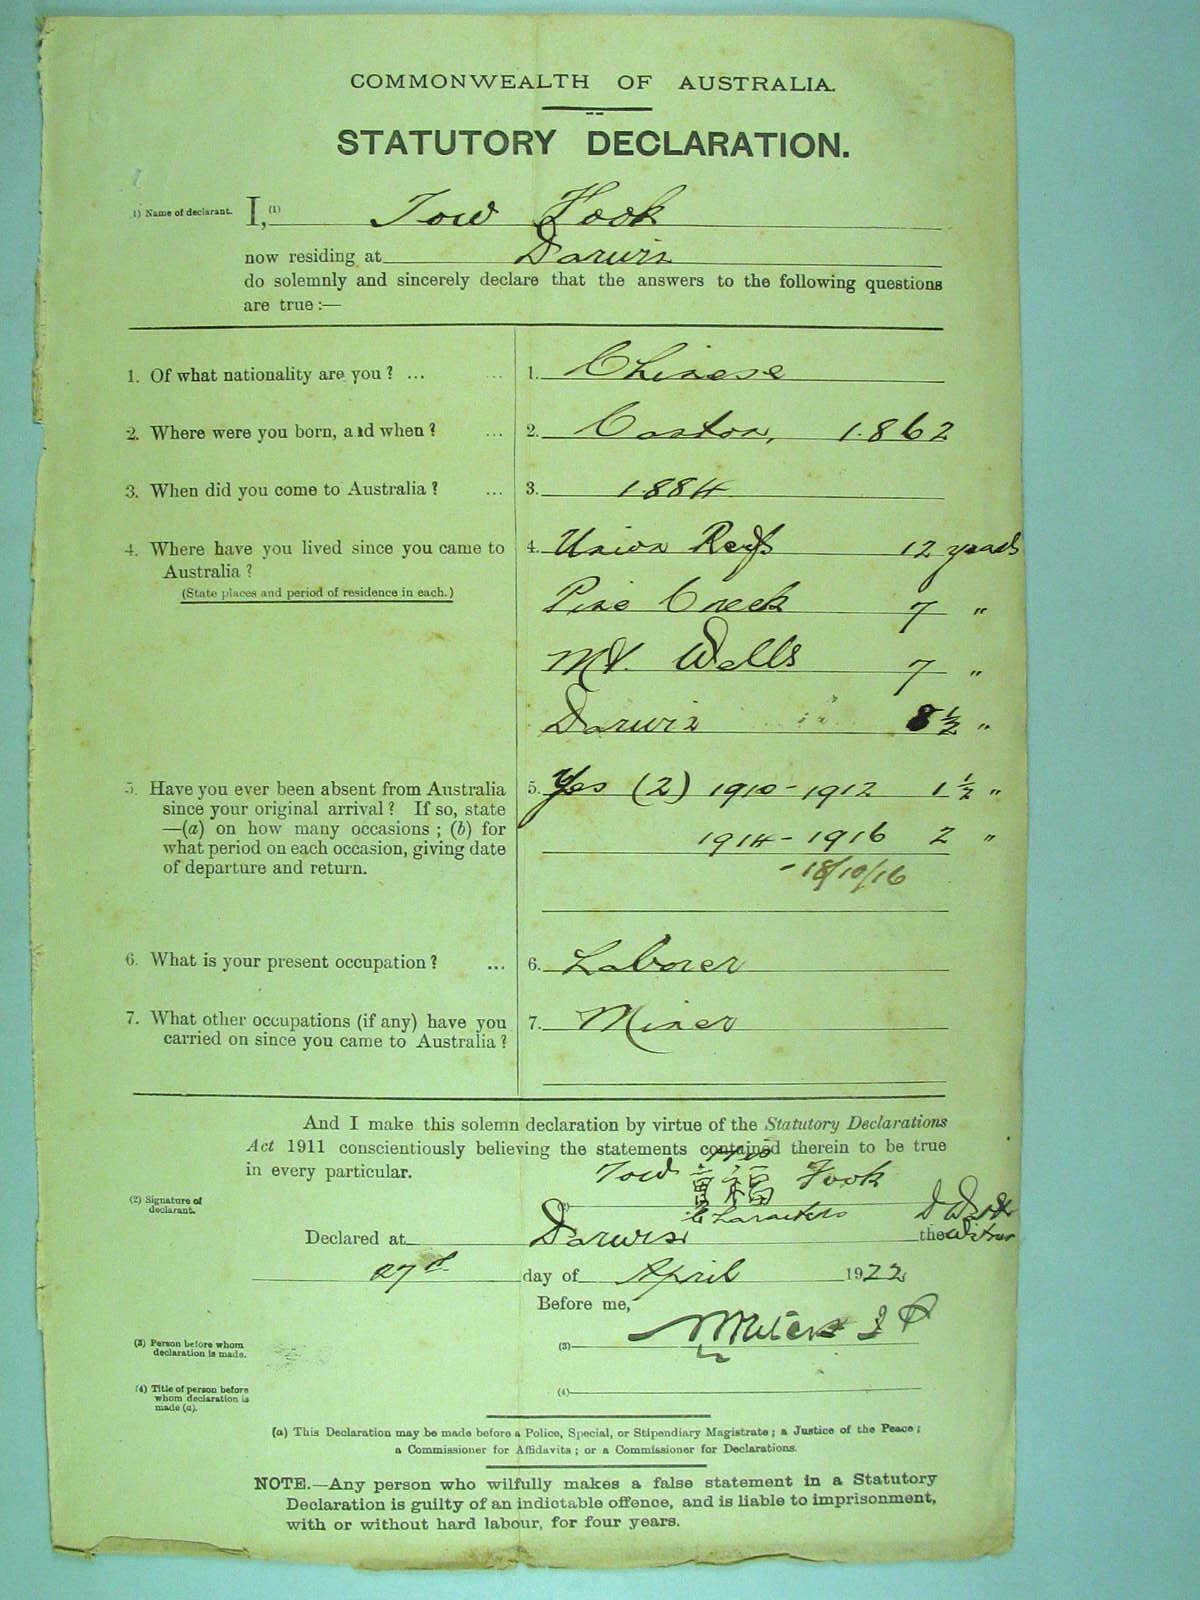 COMMONWEALTH OF AUSTRALIA.
STATUTORY DECLARATION.
(1) Name of declarant. I, (1) Tow Fook
now residing at Darwin
do solemnly and sincerely declare that the answers to the following questions
are true :—
1. Of what nationality are you ? ... ... 1. Chinese
2. Where were you born, and when ? ... 2. Canton, 1862
3. When did you come to Australia ? ... 3. 1884
4. Where have you lived since you came to 4. Union Reefs 12 years
Australia ?
(State places and period of residence in each.)
Pine Creek 7 "
Mt. Wells 7 "
Darwin 8½ "
5. Have you ever been absent from Australia 5. Yes (2) 1910 - 1912 1½ "
since your original arrival ? If so, state
—(a) on how many occasions ; (b) for 1914 - 1916 2 "
what period on each occasion, giving date
of departure and return. - 18/10/16
6. What is your present occupation ? ... 6. Laborer
7. What other occupations (if any) have you 7. Miner
carried on since you came to Australia ?
And I make this solemn declaration by virtue of the Statutory Declarations
Act 1911 conscientiously believing the statements contained therein to be true
in every particular.
Tow 福 Fook
(2) Signature of
declarant.
Characters
Declared at Darwin the
27th day of April 1922
Before me,
(3) Person before whom
declaration is made. (3) J P
(4) Title of person before
whom declaration is
made (a). (4)
(a) This Declaration may be made before a Police, Special, or Stipendiary Magistrate ; a Justice of the Peace ;
a Commissioner for Affidavits ; or a Commissioner for Declarations.
NOTE.—Any person who wilfully makes a false statement in a Statutory
Declaration is guilty of an indictable offence, and is liable to imprisonment,
with or without hard labour, for four years.